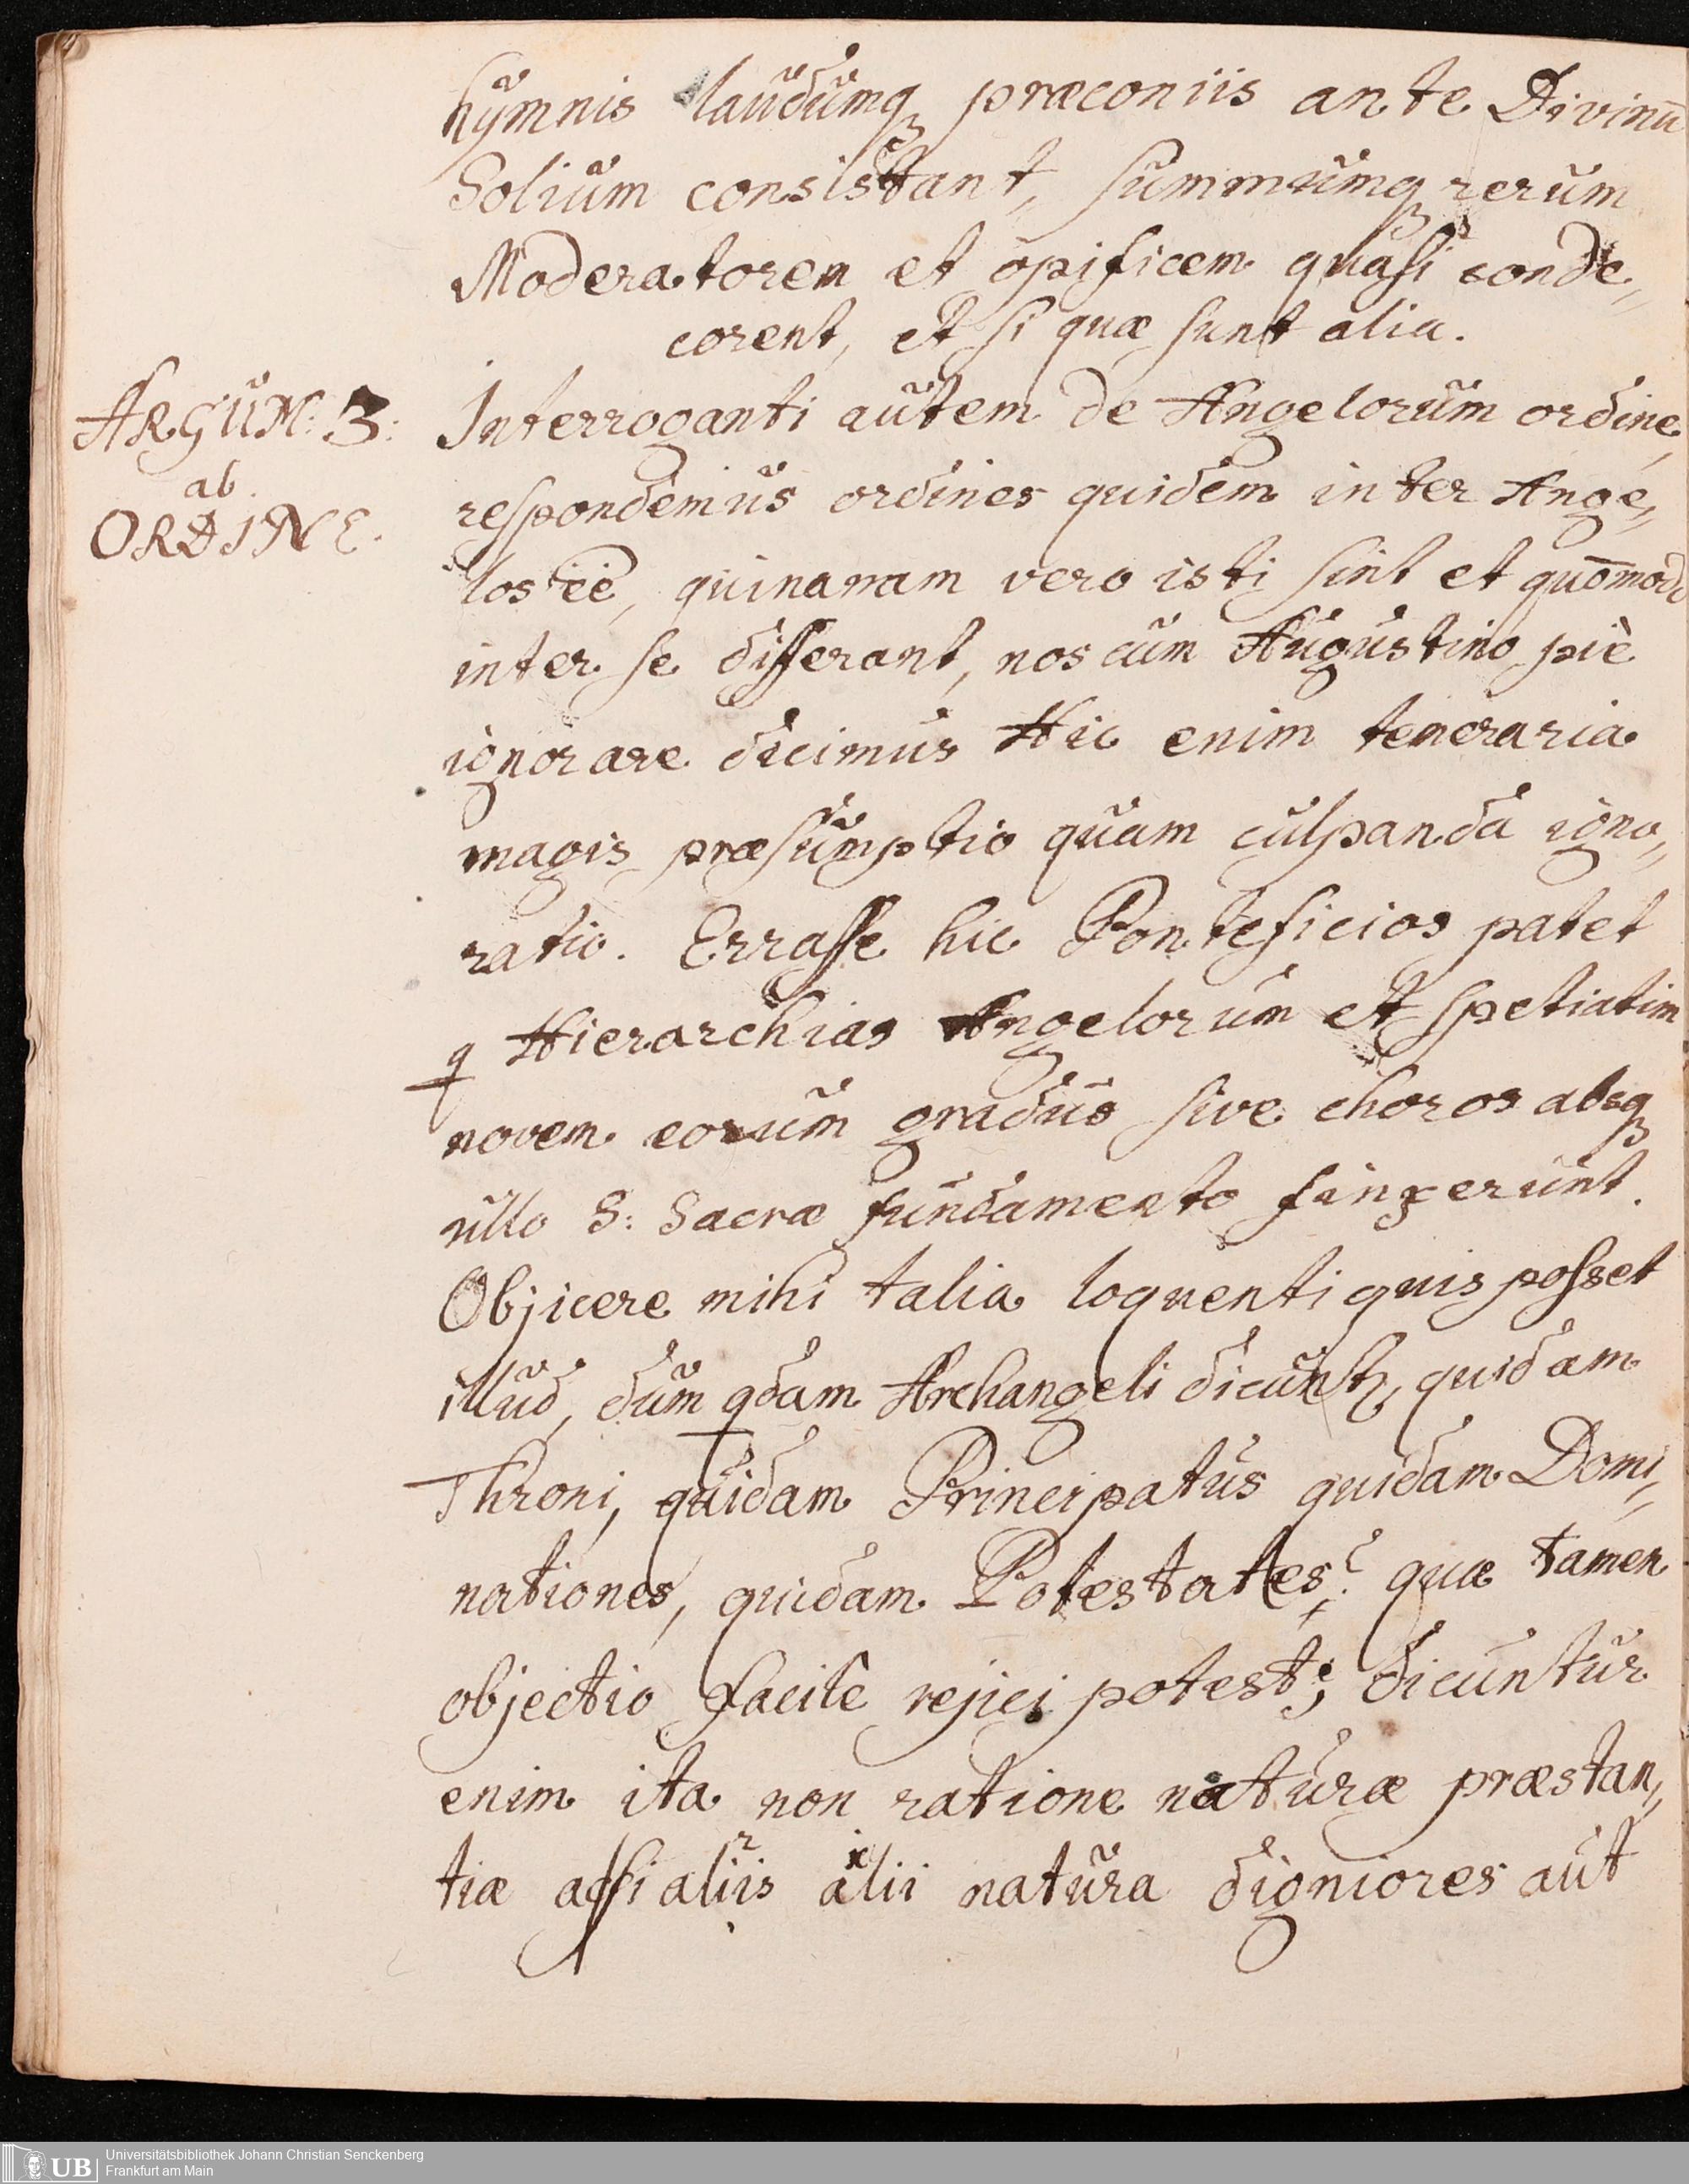 hymnis laudumq præconiis ante Divinū
Solium consistant, summumq rerum
Moderatorem et opificem quasi conde„
corent, et si quæ sunt alia.
ARGUM: 3:
ab
ORDINE.
Interroganti autem de Angelorum ordine,
respondemus ordines quidem inter Ange„
los ēē, quinanam vero isti sint et quōmodo
inter se differant, nos cum Augustino piè
ignorare dicimus Hic enim temeraria
magis præsumptio quam culpanda igno„
ratio. Errasse hic Pontificios patet
q Hierarchias Angelorum et spetiatim
novem eorum gradus sive choros absq
ullo S: Sacræ fundamento finxerunt.
Objicere mihi talia loquenti quis posset
illud, dum qdam Archangeli dicunt, quidam
Throni, quidam Principatus quidam Domi„
nationes, quidam Potestates? quæ tamen
objectio facilè rejici potest; dicuntur
enim ita non ratione naturæ præstan„
tiæ acsi aliis alii natura digniores aut
Universitätsbibliothek Johann Christian Senckenberg
Frankfurt am Main
UB